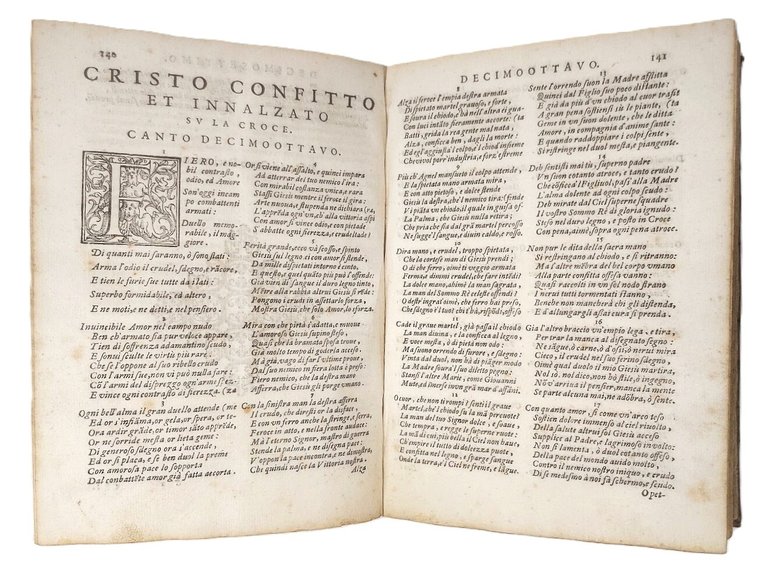 140
CRISTO CONFITTO
ET INNALZATO
SV LA CROCE.
CANTO DECIMOOTTAVO.
1
FIERO, e no-
bil contrasto,
odio, ed Amore
Son'oggi in cam
po combattenti
armati:
Duello memo-
rabile, il mag-
giore.
Di quanti mai saranno, ò sono stati:
Arma l'odio il crudel, sdegno, e rācore,
E tien le furie sue tutte da i lati:
Superbo formidabile, ed altero,
E ne moti, e ne detti, e nel pensiero.
2
Inuincibile Amor nel campo nudo
Ben ch'armato sia pur veloce appare,
Tien di sofferenza adamantino scudo,
E son sui scudi le virtù più rare.
Che se l'oppone al suo ribello crudo
Con l'armi sue, non vi può nulla fare,
Cō l'armi del dispregio ogn'armi spez-
E vince ogni contrasto di fierezza. (za
3
Ogni bell'alma il gran duello attende (me
Ed or s'infiāma, or gela, or spera, or te-
Ora ardir grāde, or timor il cor le prende,
Or ne sorride mesta or lieta geme:
Di generoso sdegno ora l'accende,
Ed or si placa, e se ben duol la preme
Con amorosa pace lo sopporta
Dal combattēte amor già fatta accorta.
4
Or si viene all'assalto, e quinci impara
Ad atterrar del tuo nemico l'ira:
Con mirabil costanza vnica, e rara
Stassi Giesù mentre il feroce il gira:
Arte nuoua, e stupenda ne dichiara (ra,
L'apprēda ogn'vn, ch'alla vittoria aspi
Con amor si vince odio, e con pietade
S'abbatte ogni fierezza, e crudeltade!
5
Ferità grande, ecco và scosso, e sponto
Giesù sul legno, ei con amor si stende,
Da mille dispietati intorno è cinto,
E questo, e quel quāto più può l'offende:
Già vien di sangue il duro legno tinto,
Mētre alla rabbia altrui Giesù si rende,
Pongono i crudi in assettarlo forza,
Mostra Giesù, che solo Amor lo sforza.
6
Mira con che pietà s'adatta, e muoue
L'amoroso Giesù supino steso,
Quasi che la bramata sposa troue,
Già molto tempo di goderla acceso:
Mà già, vago di far l'vltime proue
Dal suo nemico in fiera lotta è preso:
Fiero nemico, che la destra mano
Afferra, che Giesù gli porge vmano.
7
Con la sinistra man la destra afferra
Il crudo, che diresti or la disface,
E con vn ferro anche la stringe, e serra,
Feroce in atto, e nella fronte audace:
Mà l'eterno Signor, mastro di guerra
Stende la palma, e ne disegna pace:
V'oppon la pace incontra, e ne dinostra,
Che quindi nasce la Vittoria nostra.
Alza
DECIMOOTTAVO.
141
8
Alza il feroce l'empia destra armata
Di dispietato martel grauoso, e forte,
E soura il chiodo, e hà nell'altra ei guar-
Con luci intāto fieramente accorte: (ta
Batti, grida la rea gente mal nata,
Alza, conficca ben, dagli la morte:
Ed egl'aggiusta il colpo al chiodo insieme
Che vi vuol por industria, e forze estreme.
9
Più ch'Agnel mansueto il mio Giesù attende,
E la spietata mano armata mira,
E con atto pietoso, e dolce stende
La destra palma, che'l nemico tira:
Vide l'empio il chiodo il quale in gusa of
La Palma, che Giesù nulla ritira;
Che pria del gran martel percosso
Ne sugge'l sangue, e'l duro cādido, e rosso.
10
Dira mano, e crudel, troppo spietata,
Che la cortese man di Giesù prendi;
O di che ferro, ahimè ti veggio armata
Ferma, e dimmi crudel, che far intendi?
La dolce mano, ahimè la man sagrata,
La man del Sommo Rè celeste offendi:
O destr'ingrata ahimè, che ferro hai preso,
Ch'offendi chi giamai non t'hà offeso.
11
Cade il graue martel, già passa il chiodo
La man diuina, e la confficca al legno,
E voce mesta, ò di morir in modo
Ma suono orrendo di furore, e sdegno:
Vinta dal duol, non sà di qual nodo
La Madre fuora'l suo diletto segno,
Stassi l'altre Marie, come Giouanni
Mute, ed inuolse in vn grā mar d'affāni.
12
O cuor, che non ti rompi? senti il graue
Martel, ahi che 'l chiodo sù la mā percuote!
La man del tuo Signor dolce, e soaue,
Che tempra, e regge le superne ruote:
La mā di cui, più bella il Ciel non haue,
E tant'opre mirabili far puote,
È confitta nel legno, e sparge sangue
Onde la terra, e'l Ciel ne freme, e lāgue.
13
Sente l'orrendo suon la Madre afflitta
Quinci dal Figlio suo poco distante:
Ed è già da più d'un chiodo al cuor trafit
A gran pena sostiensi sù le piante, (ta
Geme in vn suon dolente, che le ditta
Amore, in compagnia d'anime sante:
E quando raddoppiar i colpi sente,
Si restringe nel duol mesta, e piangente.
14
Deh sentisti mai tu, superno padre
Vn cōtrasto atroce, e tanto crudo?
Che cōficca'l Figliuol, passi alla Madre
L'alma dolente ad ogni colpo scudo:
Deh mirate dal Ciel superne squadre
Il vostro Sommo Rè di gloria ignudo:
Steso nel duro legno, e posto in Croce
Con pena, ahimè, sopra ogni pena atroce.
15
Non pur le dita della sacra mano
Si restringono al chiodo, e si ritranno:
Ma l'altre mēbra del bel corpo vmano
Alla parte confitta offesa vanno:
Quasi raccolti in vn sol nodo strano
I nerui tutti tormentati stanno,
E bisognerà ancora chi gli distenda,
E d'allungargli assai cura si prenda.
16
Già l'altro braccio vn'empio lega, e tira,
Per trar la manca al disegnato segno:
Al disegno crudel, ch'ei fece, or mira
Cieco, il crudel nel suo ferino sdegno,
Omai quel duolo il mio Giesù martira,
Nol sò, nol dico, non bà stile, ò ingegno,
Nè v'arriua il pensier, manca la mente
Se parte alcuna mai, ne adōbra, ò sente.
17
Con quanto amor, sì come vn'arco teso
Sostien dolore immenso al ciel riuolto,
Della salute altrui sol Giesù acceso
Supplice al Padre, e lagrimoso il volto:
Non si lamenta, ò duol cotanto offeso,
Della pace del mondo auido molto,
Contro il nemico nostro iniquo, e crudo
Di se medesmo à noi fà schermo, e scudo.
Opet-